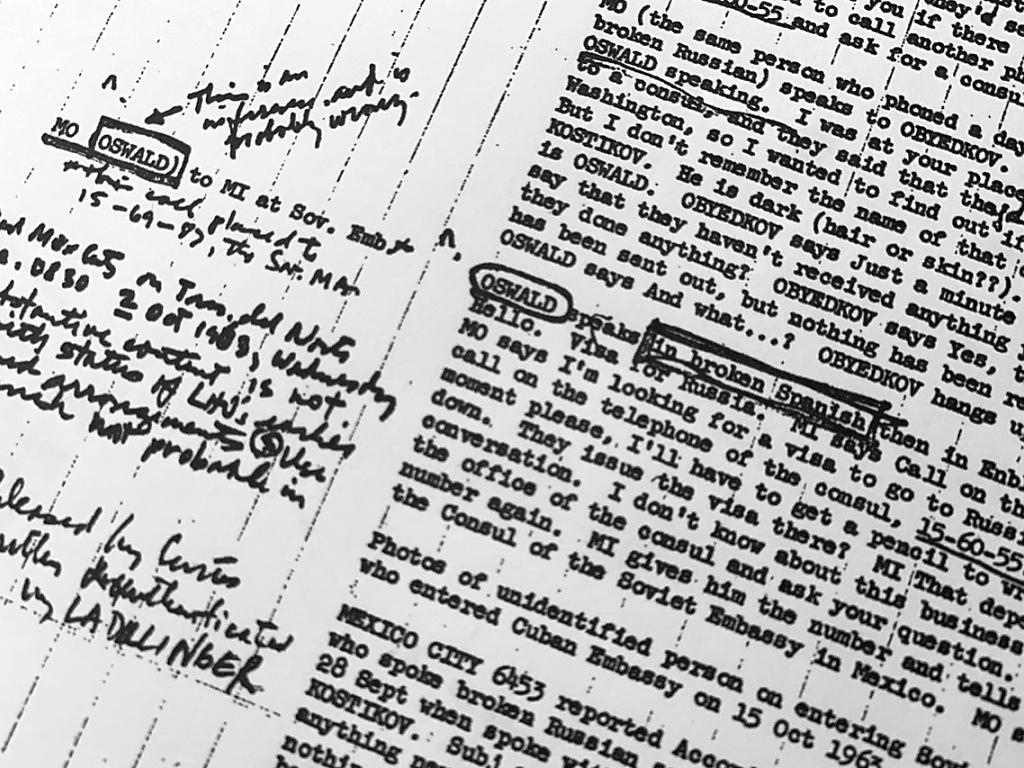 This is an
inference and is
probably wrong.
MO OSWALD) to MI at Sov. Emb
this call placed to
15-69-87, the Sov. MA
on
0830 2 Oct 1963, Wednesday
content is not
with status of
not probable in
by
by LADILLINGER
you if there
to call another
60-55 and ask for a consu
MO (the same person who phoned a day
broken Russian) speaks to OBYEDKOV.
OSWALD speaking. I was at your place
to a consul, and they said that they'd
Washington, so I wanted to find out if
But I don't remember the name of that
KOSTIKOV. He is dark (hair or skin??).
is OSWALD. OBYEDKOV says Just a minute
say that they haven't received anything
they done anything? OBYEDKOV says Yes,
has been sent out, but nothing has been re
OSWALD says And what...? OBYEDKOV hangs u
OSWALD speaks in broken Spanish then in Engl
Hello. Visa for Russia. MI says Call on th
MO says I'm looking for a visa to go to Russi
call on the telephone of the consul, 15-60-55
moment please, I'll have to get a pencil to wr
down. They issue the visa there? MI That depe
conversation. I don't know about this business
the office of the consul and ask your question.
number again. MI gives him the number and tells
the Consul of the Soviet Embassy in Mexico. MO s
Photos of unidentified person on entering Sovi
who entered Cuban Embassy on 15 Oct 1963
MEXICO CITY 6453 reported Accor
who spoke broken Russian s
28 Sept when spoke with
KOSTIKOV. Subj
anything ne
nothin